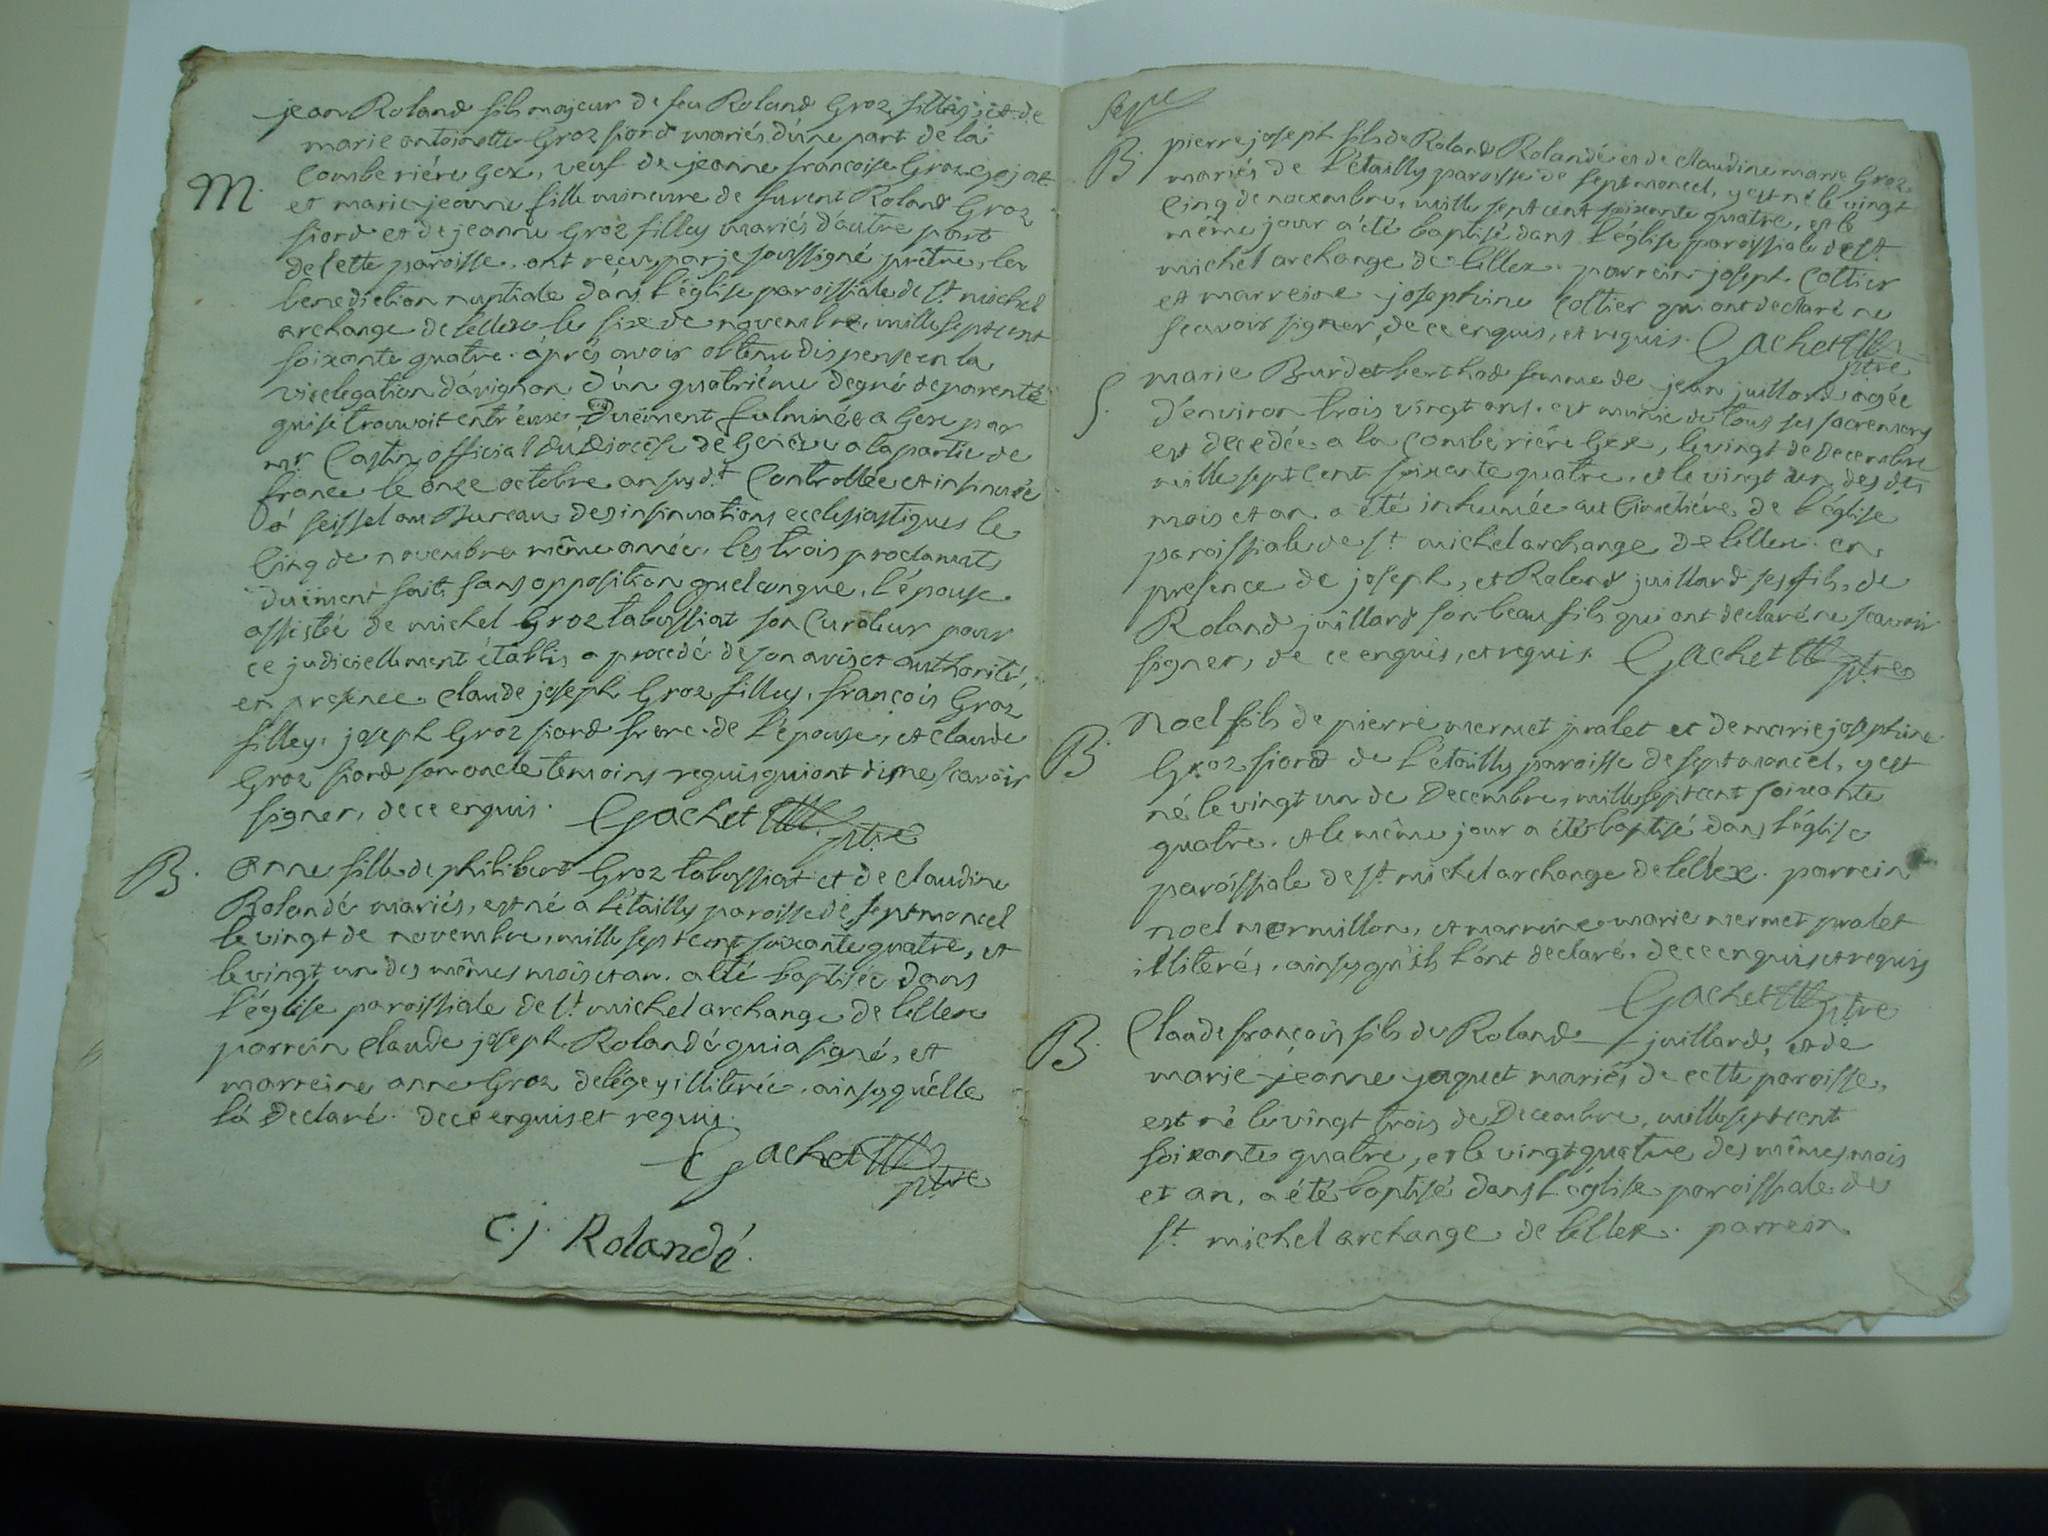 jean Roland fils majeur de feu Roland Groz filley, et de
marie antoinette Groz fiord mariés d'une part de la
M. Combe riére Gex, veuf de jeanne francoise Groz
et marie jeanne fille mineure de furent Roland Groz
fiord et de jeanne Groz filley mariés d'autre part
de cette paroisse. ont reçus par je soussigné prêtre, la
benediction nuptiale dans l'église paroissiale de St michel
archange de lellex le six de novembre, mille sept cent
soixante quatre. áprés avoir obtenu dispense en la
vicelegation d'avignon d'un quatriéme degré de parenté
qui se trouvoit entr'eux Duëment fulminée a Gex par
mr. Castin official du Diocèse de Genéve a la partie de
france le onze octobre an susdt. Controllée et insinuée
á seissel au Bureau des insinuations ecclesiastiques le
cinq de novembre même année, les trois proclamats
duëment faits sans opposition quelconque, l'épouse
assistée de michel Groz tabussiat son Curateur pour
ce judiciellement établis a procedé de son avis et authorité,
en presence claude joseph Groz filley, françois Groz
filley, joseph Groz fiord frere de l'épouse, et claude
Groz fiord son oncle temoins requis qui ont dit ne scavoir
signer, de ce enquis. Gachet ptre
B. Anne fille de philibert Groz tabussiat et de claudine
Rolandé mariés, est né a l'étailly paroisse de septmoncel
le vingt de novembre, mille sept cent soixante quatre, et
le vingt un des mêmes mois et an. a été baptisée dans
l'église paroissiale de St. michel archange de lellex
parrein claude joseph Rolandé qui a signé, et
marreine anne Groz delégey illiterée. ainsy qu'elle
l'a declaré. de ce enquis et requis.
Gachet ptre
C. j. Rolandé.
B. pierre joseph fils de Roland Rolandé et de claudine marie Groz
mariés de l'étailly paroisse de septmoncel, y est né le vingt
cinq de novembre, mille sept cent soixante quatre, et le
même jour a été baptisé dans l'église paroissiale de St.
michel archange de lellex. parrein joseph Coltier
et marreine josephine Coltier qui ont declaré ne
scavoir signer, de ce enquis, et requis. Gachet
ptre
S. marie Burdet berthod femme de jean juillard agée
d'environ trois vingt ans. et munie de tous ses sacremens
est decedée a la Combe riére Gex, le vingt de Decembre
mille sept cent soixante quatre, et le vingt un des dts
mois et an. a été inhumée au Cimetiére de l'église
paroissiale de St. michel archange de lellex. en
presence de joseph, et Roland juillard ses fils, de
Roland juillard son beau fils qui ont declaré ne scavoir
signer, de ce enquis, et requis. Gachet ptre
B. Noel fils de pierre mermet pralet et de marie josephine
Groz fiord de l'étailly paroisse de septmoncel, y est
né le vingt un de Decembre, mille sept cent soixante
quatre, et le même jour a été baptisé dans l'église
paroissiale de St. michel archange de lellex. parrein
noel mermillon, et marreine marie mermet pralet
illiterés. ainsy qu'ils l'ont declaré. de ce enquis et requis
Gachet ptre
B. Claude françois fils de Roland juillard, et de
marie jeanne jaquet mariés de cette paroisse,
est né le vingt trois de Decembre, mille sept cent
soixante quatre, et le vingt quatre des mêmes mois
et an, a été baptisé dans l'église paroissiale de
St. michel archange de lellex. parrein